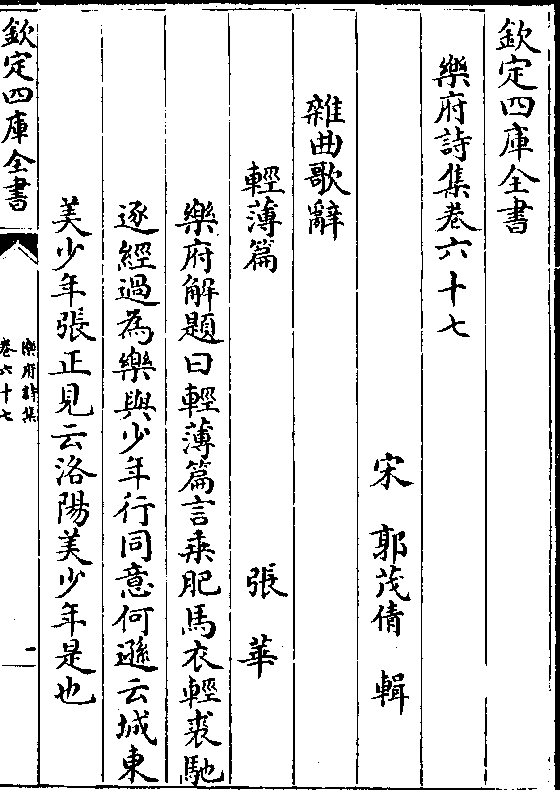 欽定四庫全書
樂府詩集卷六十七
宋 郭茂倩 輯
雜曲歌辭
輕薄篇 張華
樂府解題曰輕薄篇言乘肥馬衣輕裘馳
逐經過為樂與少年行同意何遜云城東
美少年張正見云洛陽美少年是也
欽定四庫全書
樂府詩集
卷六十七
一